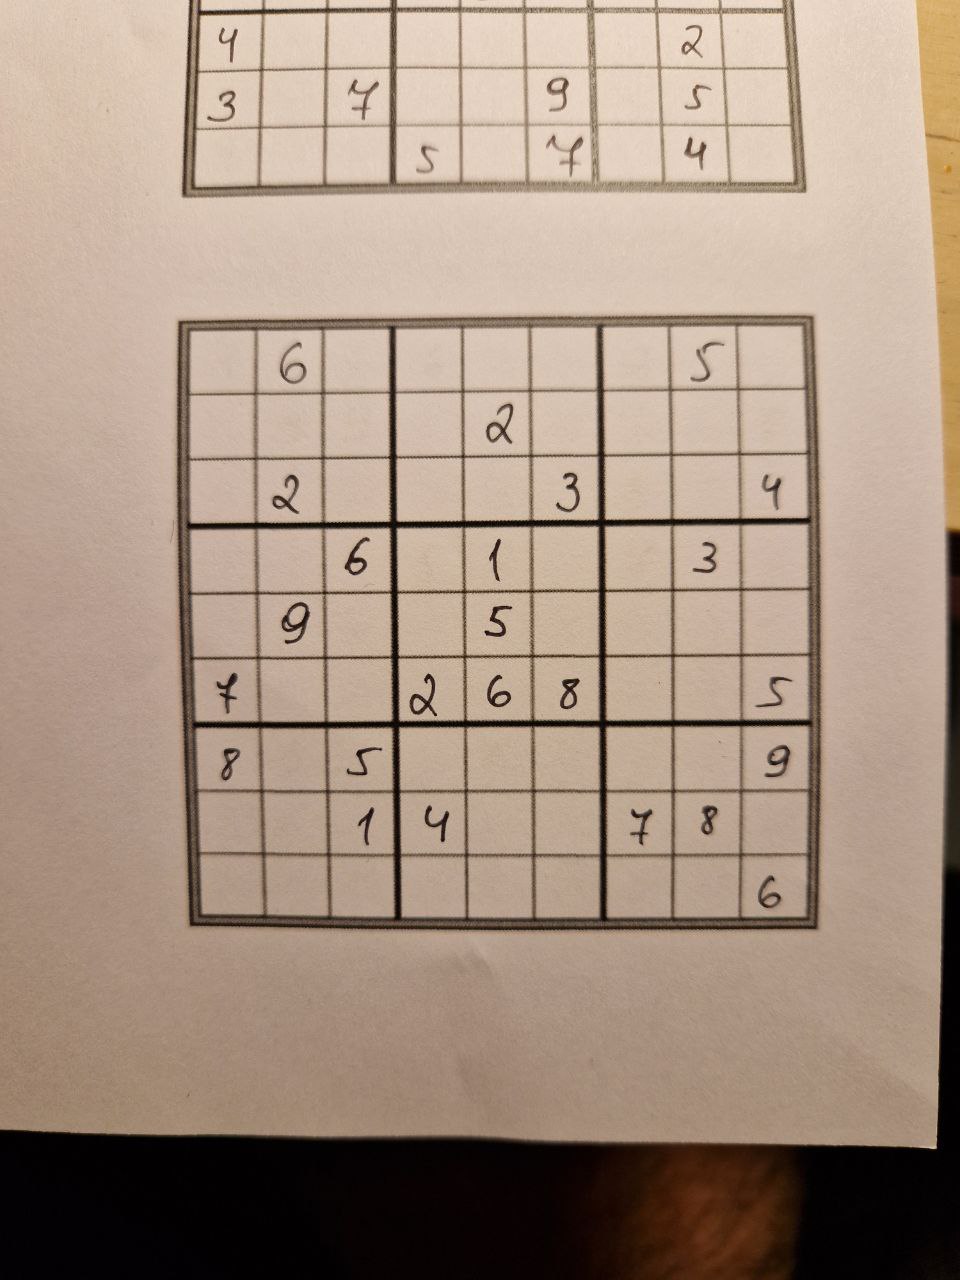 4 2
3 7 9 5
5 7 4
6 5
2
2 3 4
6 1 3
9 5
7 2 6 8 5
8 5 9
1 4 7 8
6